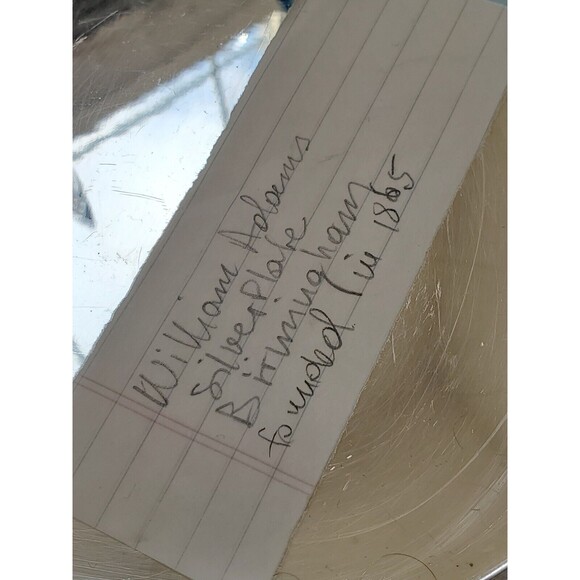 William Adams
SilverPlate
Birmingham
founded in 1865